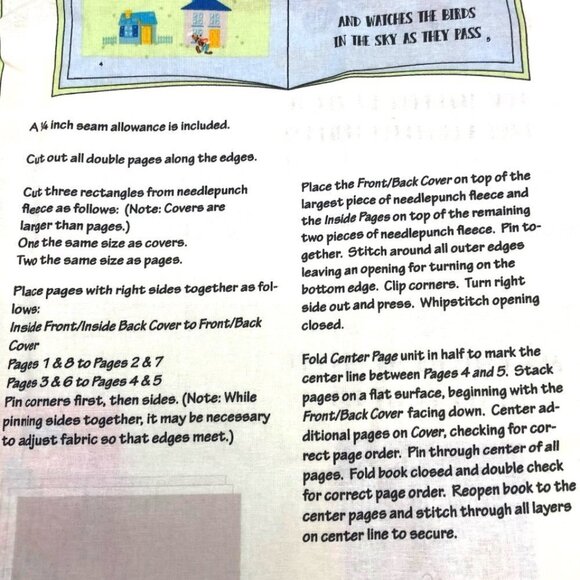 AND WATCHES THE BIRDS
IN THE SKY AS THEY PASS
5
4
A ¼ inch seam allowance is included.
Cut out all double pages along the edges.
Cut three rectangles from needlepunch
fleece as follows: (Note: Covers are
larger than pages.)
One the same size as covers.
Two the same size as pages.
Place pages with right sides together as fol-
lows:
Inside Front/Inside Back Cover to Front/Back
Cover
Pages 1 & 8 to Pages 2 & 7
Pages 3 & 6 to Pages 4 & 5
Pin corners first, then sides. (Note: While
pinning sides together, it may be necessary
to adjust fabric so that edges meet.)
Place the Front/Back Cover on top of the
largest piece of needlepunch fleece and
the Inside Pages on top of the remaining
two pieces of needlepunch fleece. Pin to-
gether. Stitch around all outer edges
leaving an opening for turning on the
bottom edge. Clip corners. Turn right
side out and press. Whipstitch opening
closed.
Fold Center Page unit in half to mark the
center line between Pages 4 and 5. Stack
pages on a flat surface, beginning with the
Front/Back Cover facing down. Center ad-
ditional pages on Cover, checking for cor-
rect page order. Pin through center of all
pages. Fold book closed and double check
for correct page order. Reopen book to the
center pages and stitch through all layers
on center line to secure.